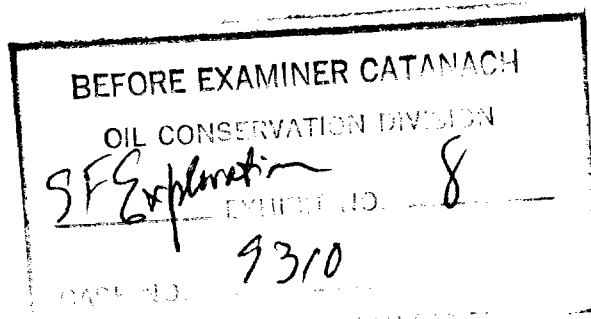 BEFORE EXAMINER CATANACH
OIL CONSERVATION DIVISION
SF Exploration EXHIBIT NO. 8
CASE NO. 9310